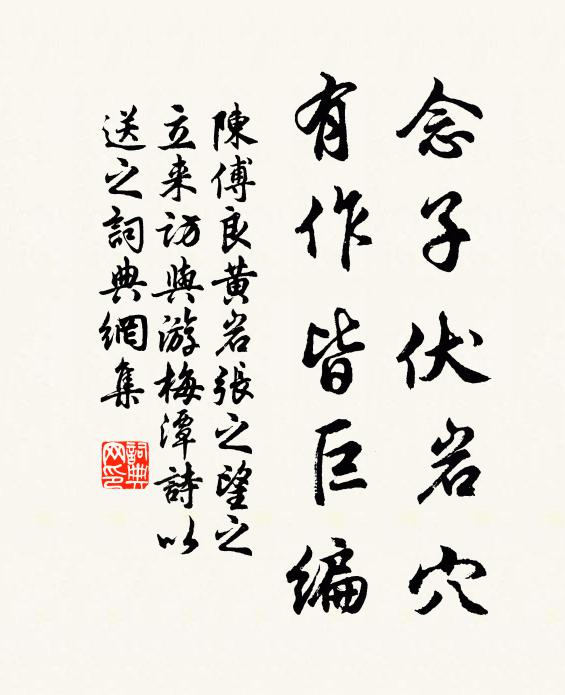 念子伏岩穴
有作皆巨编
陳傅良黄岩張之望之
立来访與游梅潭詩以
送之詞典網集
詞典网印